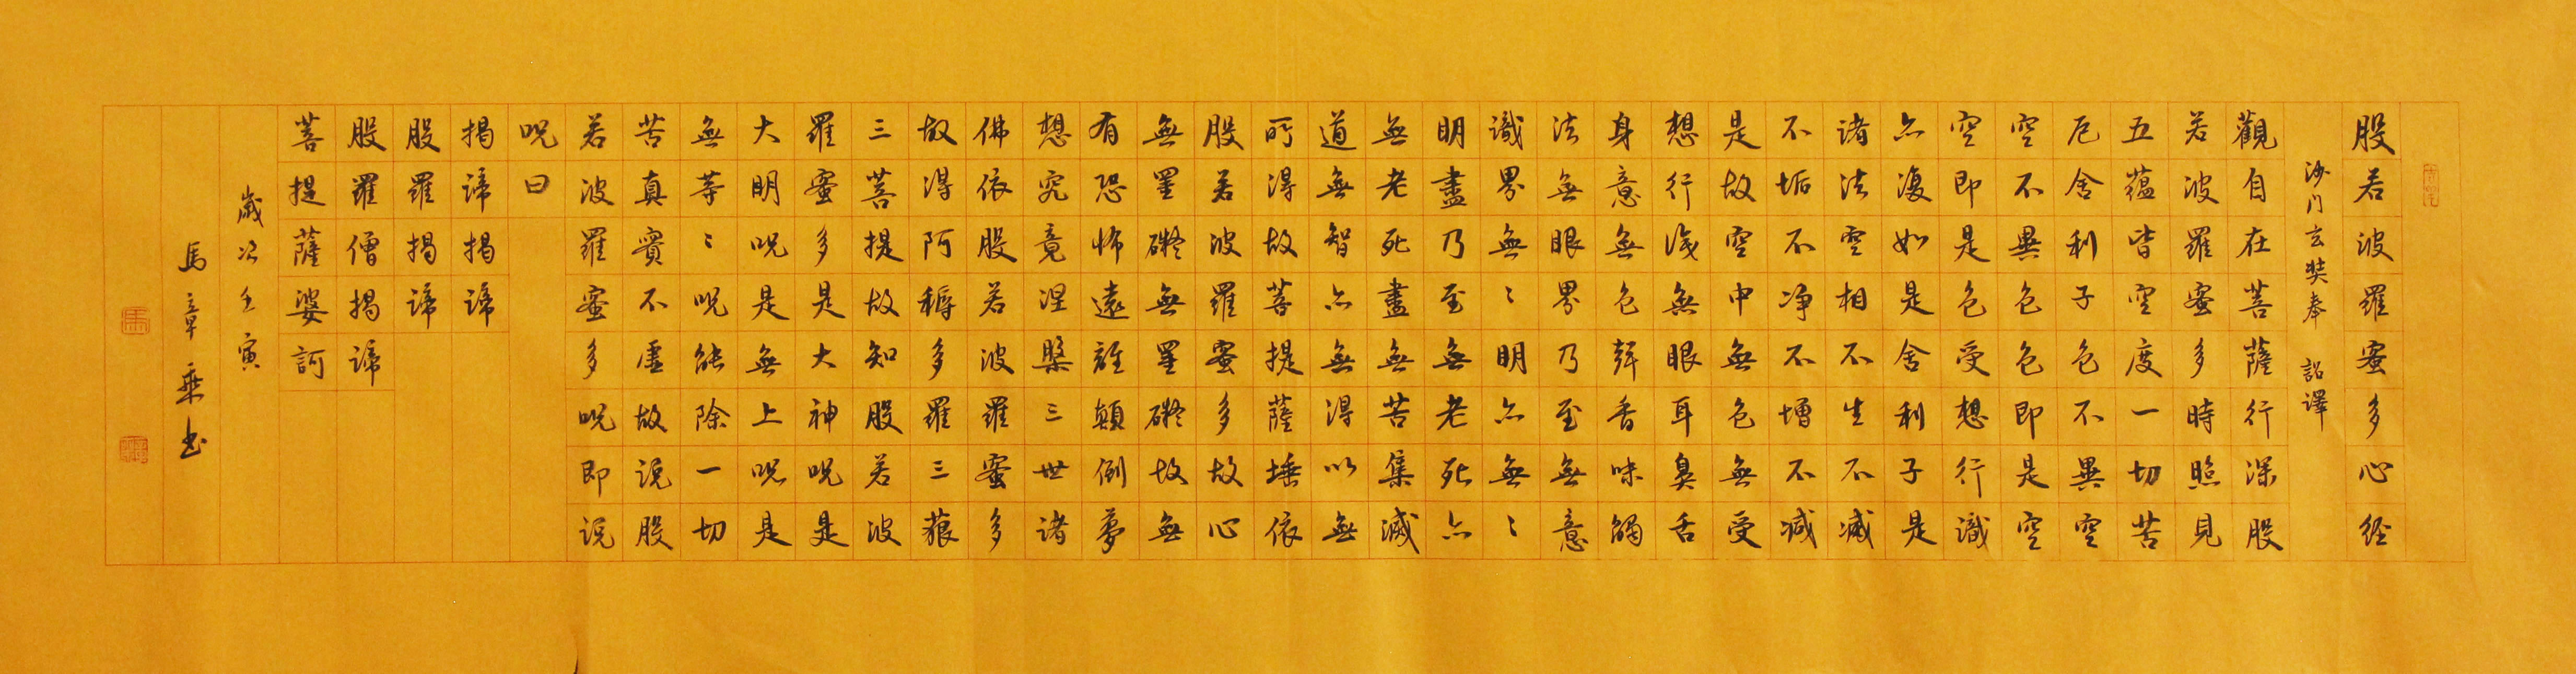 般若波羅蜜多心経
沙门玄奘奉 詔譯
觀自在菩薩行深般
若波羅蜜多時照見
五蘊皆空度一切苦
厄舍利子色不異空
空不異色色即是空
空即是色受想行識
亦復如是舍利子是
諸法空相不生不滅
不垢不净不增不減
是故空中無色無受
想行識無眼耳鼻舌
身意無色聲香味觸
法無眼界乃至無意
識界無〻明亦無〻
明盡乃至無老死亦
無老死盡無苦集滅
道無智亦無得以無
所得故菩提薩埵依
般若波羅蜜多故心
無罣礙無罣礙故無
有恐怖遠離顛倒夢
想究竟涅槃三世諸
佛依般若波羅蜜多
故得阿耨多羅三藐
三菩提故知般若波
羅蜜多是大神呪是
大明呪是無上呪是
無等〻呪能除一切
苦真實不虛故說般
若波羅蜜多呪即說
呪曰
揭諦揭諦
般羅揭諦
般羅僧揭諦
菩提薩婆訶
歲次壬寅
馬章乘书
馬